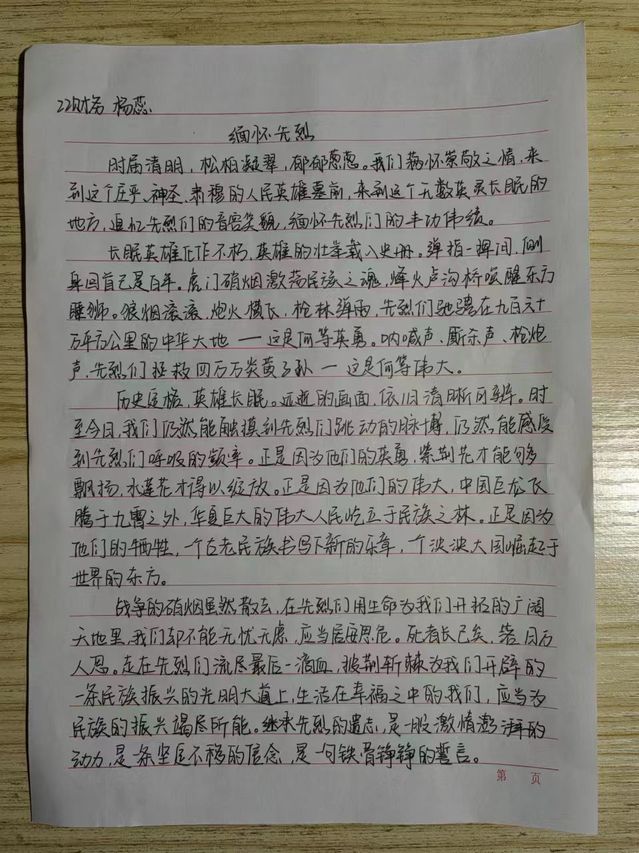 22财务 杨蕊
缅怀先烈
时届清明，松柏凝翠，郁郁葱葱。我们满怀崇敬之情，来
到这个庄严、神圣、肃穆的人民英雄墓前，来到这个无数英灵长眠的
地方，追忆先烈们的音容笑貌，缅怀先烈们的丰功伟绩。
长眠英雄化作不朽，英雄的壮举载入史册。弹指一挥间，侧
身回首已是百年。虎门硝烟激荡民族之魂，烽火卢沟桥唤醒东方
睡狮。狼烟滚滚，炮火横飞，枪林弹雨，先烈们驰骋在九百六十
万平方公里的中华大地——这是何等英勇。呐喊声、厮杀声、枪炮
声，先烈们拯救四万万炎黄子孙——这是何等伟大。
历史厚德，英雄长眠。远逝的画面，依旧清晰可辨。时
至今日，我们仍然能触摸到先烈们跳动的脉搏，仍然能感受
到先烈们呼吸的频率。正是因为他们的英勇，紫荆花才能够
飘扬，水莲花才得以绽放。正是因为他们的伟大，中国巨龙飞
腾于九霄之外，华夏巨大的伟大人民屹立于民族之林。正是因为
他们的牺牲，一个古老民族书写下新的乐章，一个泱泱大国崛起于
世界的东方。
战争的硝烟虽然散去，在先烈们用生命为我们开拓的广阔
天地里，我们却不能无忧无虑，应当居安思危。死者长已矣，告慰万
人思。走在先烈们流尽最后一滴血，披荆斩棘为我们开辟的
一条民族振兴的光明大道上，生活在幸福之中的我们，应当为
民族的振兴竭尽所能。继承先烈的遗志，是一股激情澎湃的
动力，是一条坚定不移的信念，是一句铁骨铮铮的誓言。
第 页